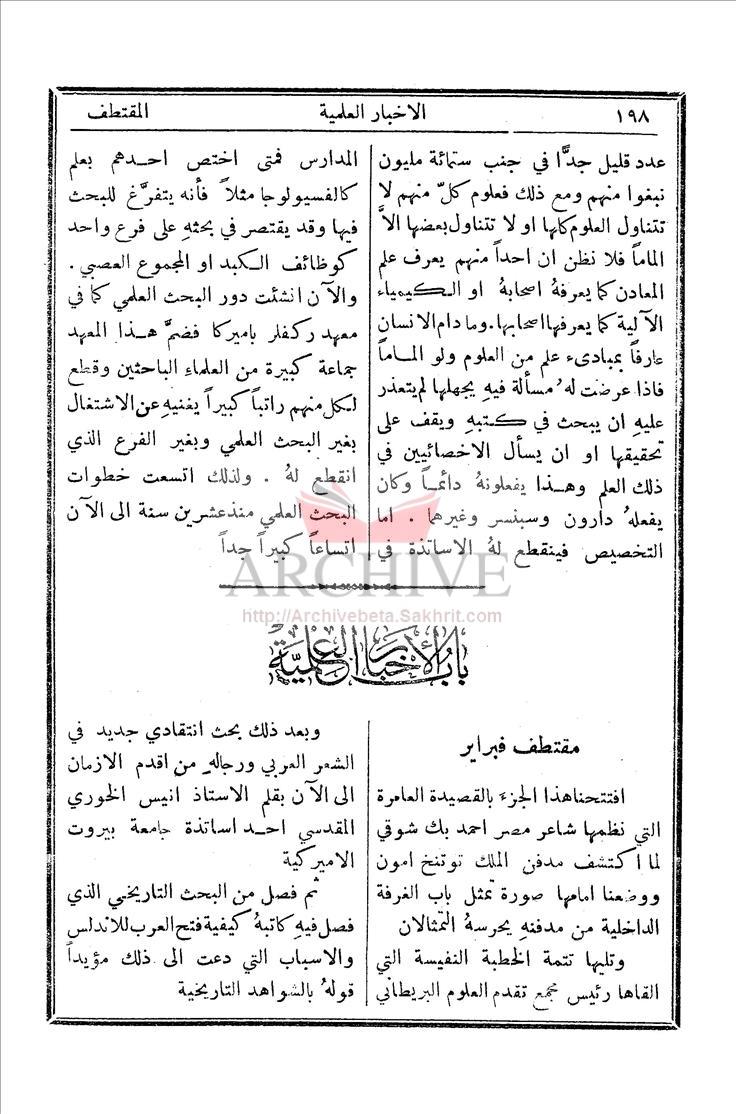 ١٩٨
الاخبار العلمية
المقتطف
عدد قليل جدًّا في جنب ستمائة مليون
نبغوا منهم ومع ذلك فعلوم كلّ منهم لا
تتناول العلوم كلها او لا تتناول بعضها الاَّ
الماماً فلا نظن ان احداً منهم يعرف علم
المعادن كما يعرفهُ اصحابهُ او الكيمياء
الآلية كما يعرفها اصحابها. وما دام الانسان
عارفاً بمبادىء علم من العلوم ولو الماماً
فاذا عرضت لهُ مسألة فيهِ يجهلها لم يتعذر
عليهِ ان يبحث في كتبهِ ويقف على
تحقيقها او ان يسأل الاخصائيين في
ذلك العلم وهذا يفعلونهُ دائماً وكان
يفعلهُ دارون وسبنسر وغيرهما . اما
التخصيص فينقطع لهُ الاساتذة في
المدارس فمتى اختص احدهم بعلم
كالفسيولوجا مثلاً فأنه يتفرَّغ للبحث
فيها وقد يقتصر في بحثهِ على فرع واحد
كوظائف الكبد او المجموع العصبي .
والآن انشئت دور البحث العلمي كما في
معهد ركفلر باميركا فضمَّ هذا المعهد
جماعة كبيرة من العلماءِ الباحثين وقطع
لكل منهم راتباً كبيراً يغنيهِ عن الاشتغال
بغير البحث العلمي وبغير الفرع الذي
انقطع لهُ . ولذلك اتسعت خطوات
البحث العلمي منذ عشرين سنة الى الآن
اتساعاً كبيراً جداً
ARCHIVE
http://Archivebeta.Sakhrit.com
باب الأخبار العلمية
مقتطف فبراير
افتتحنا هذا الجزءَ بالقصيدة العامرة
التي نظمها شاعر مصر احمد بك شوقي
لما اكتشف مدفن الملك توتنخ امون
ووضعنا امامها صورة تمثل باب الغرفة
الداخلية من مدفنهِ يحرسهُ التمثالان
وتليها تتمة الخطبة النفيسة التي
القاها رئيس مجمع تقدم العلوم البريطاني
وبعد ذلك بحث انتقادي جديد في
الشعر العربي ورجالهِ من اقدم الازمان
الى الآن بقلم الاستاذ انيس الخوري
المقدسي احد اساتذة جامعة بيروت
الاميركية
ثم فصل من البحث التاريخي الذي
فصل فيهِ كاتبهُ كيفية فتح العرب للاندلس
والاسباب التي دعت الى ذلك مؤيداً
قولهُ بالشواهد التاريخية